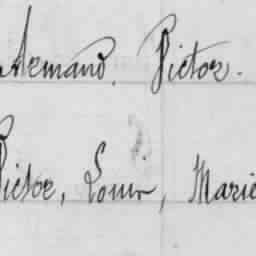 Armand. Victor.
Victor, Louis, Marie